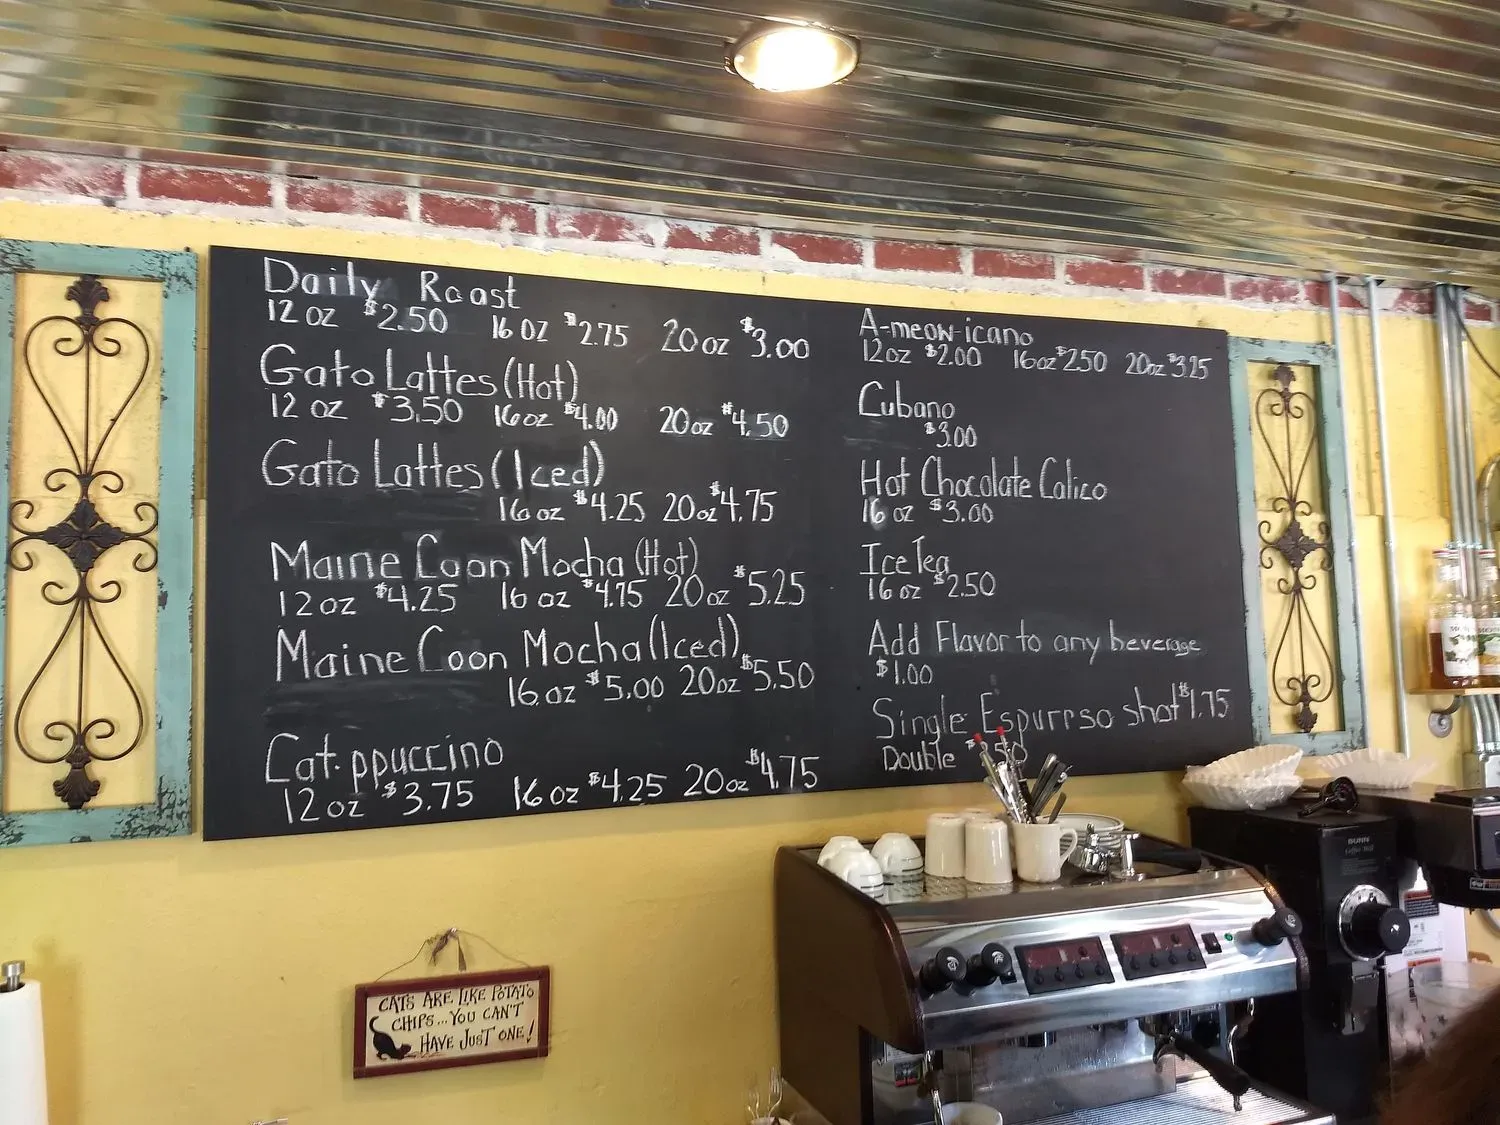 Daily Roast
12 oz $2.50 16 oz $2.75 20 oz $3.00
Gato Lattes (Hot)
12 oz $3.50 16 oz $4.00 20 oz $4.50
Gato Lattes (Iced)
16 oz $4.25 20 oz $4.75
Maine Coon Mocha (Hot)
12 oz $4.25 16 oz $4.75 20 oz $5.25
Maine Coon Mocha (Iced)
16 oz $5.00 20 oz $5.50
Cat-ppuccino
12 oz $3.75 16 oz $4.25 20 oz $4.75
A-meow-icano
12oz $2.00 16oz $2.50 20oz $3.25
Cubano
$3.00
Hot Chocolate Calico
16 oz $3.00
Ice Tea
16 oz $2.50
Add Flavor to any beverage
$1.00
Single Espurrso shot $1.75
Double
CATS ARE LIKE POTATO
CHIPS...YOU CAN'T
HAVE JUST ONE!
BUNN